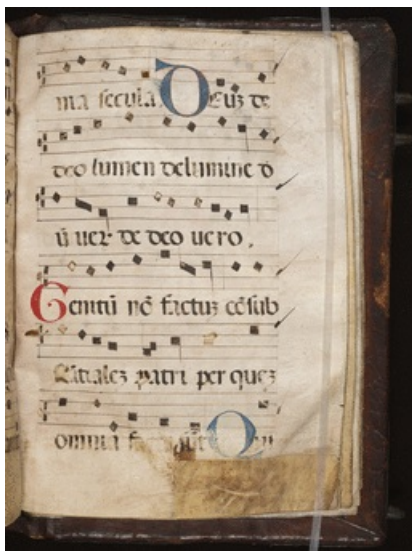 ma secula. Deuʒ de
deo lumen delumine d
ū uer de deo uero.
Genitū nō factuʒ cōsub
ſtātialeʒ patri per queʒ
omnia Qui